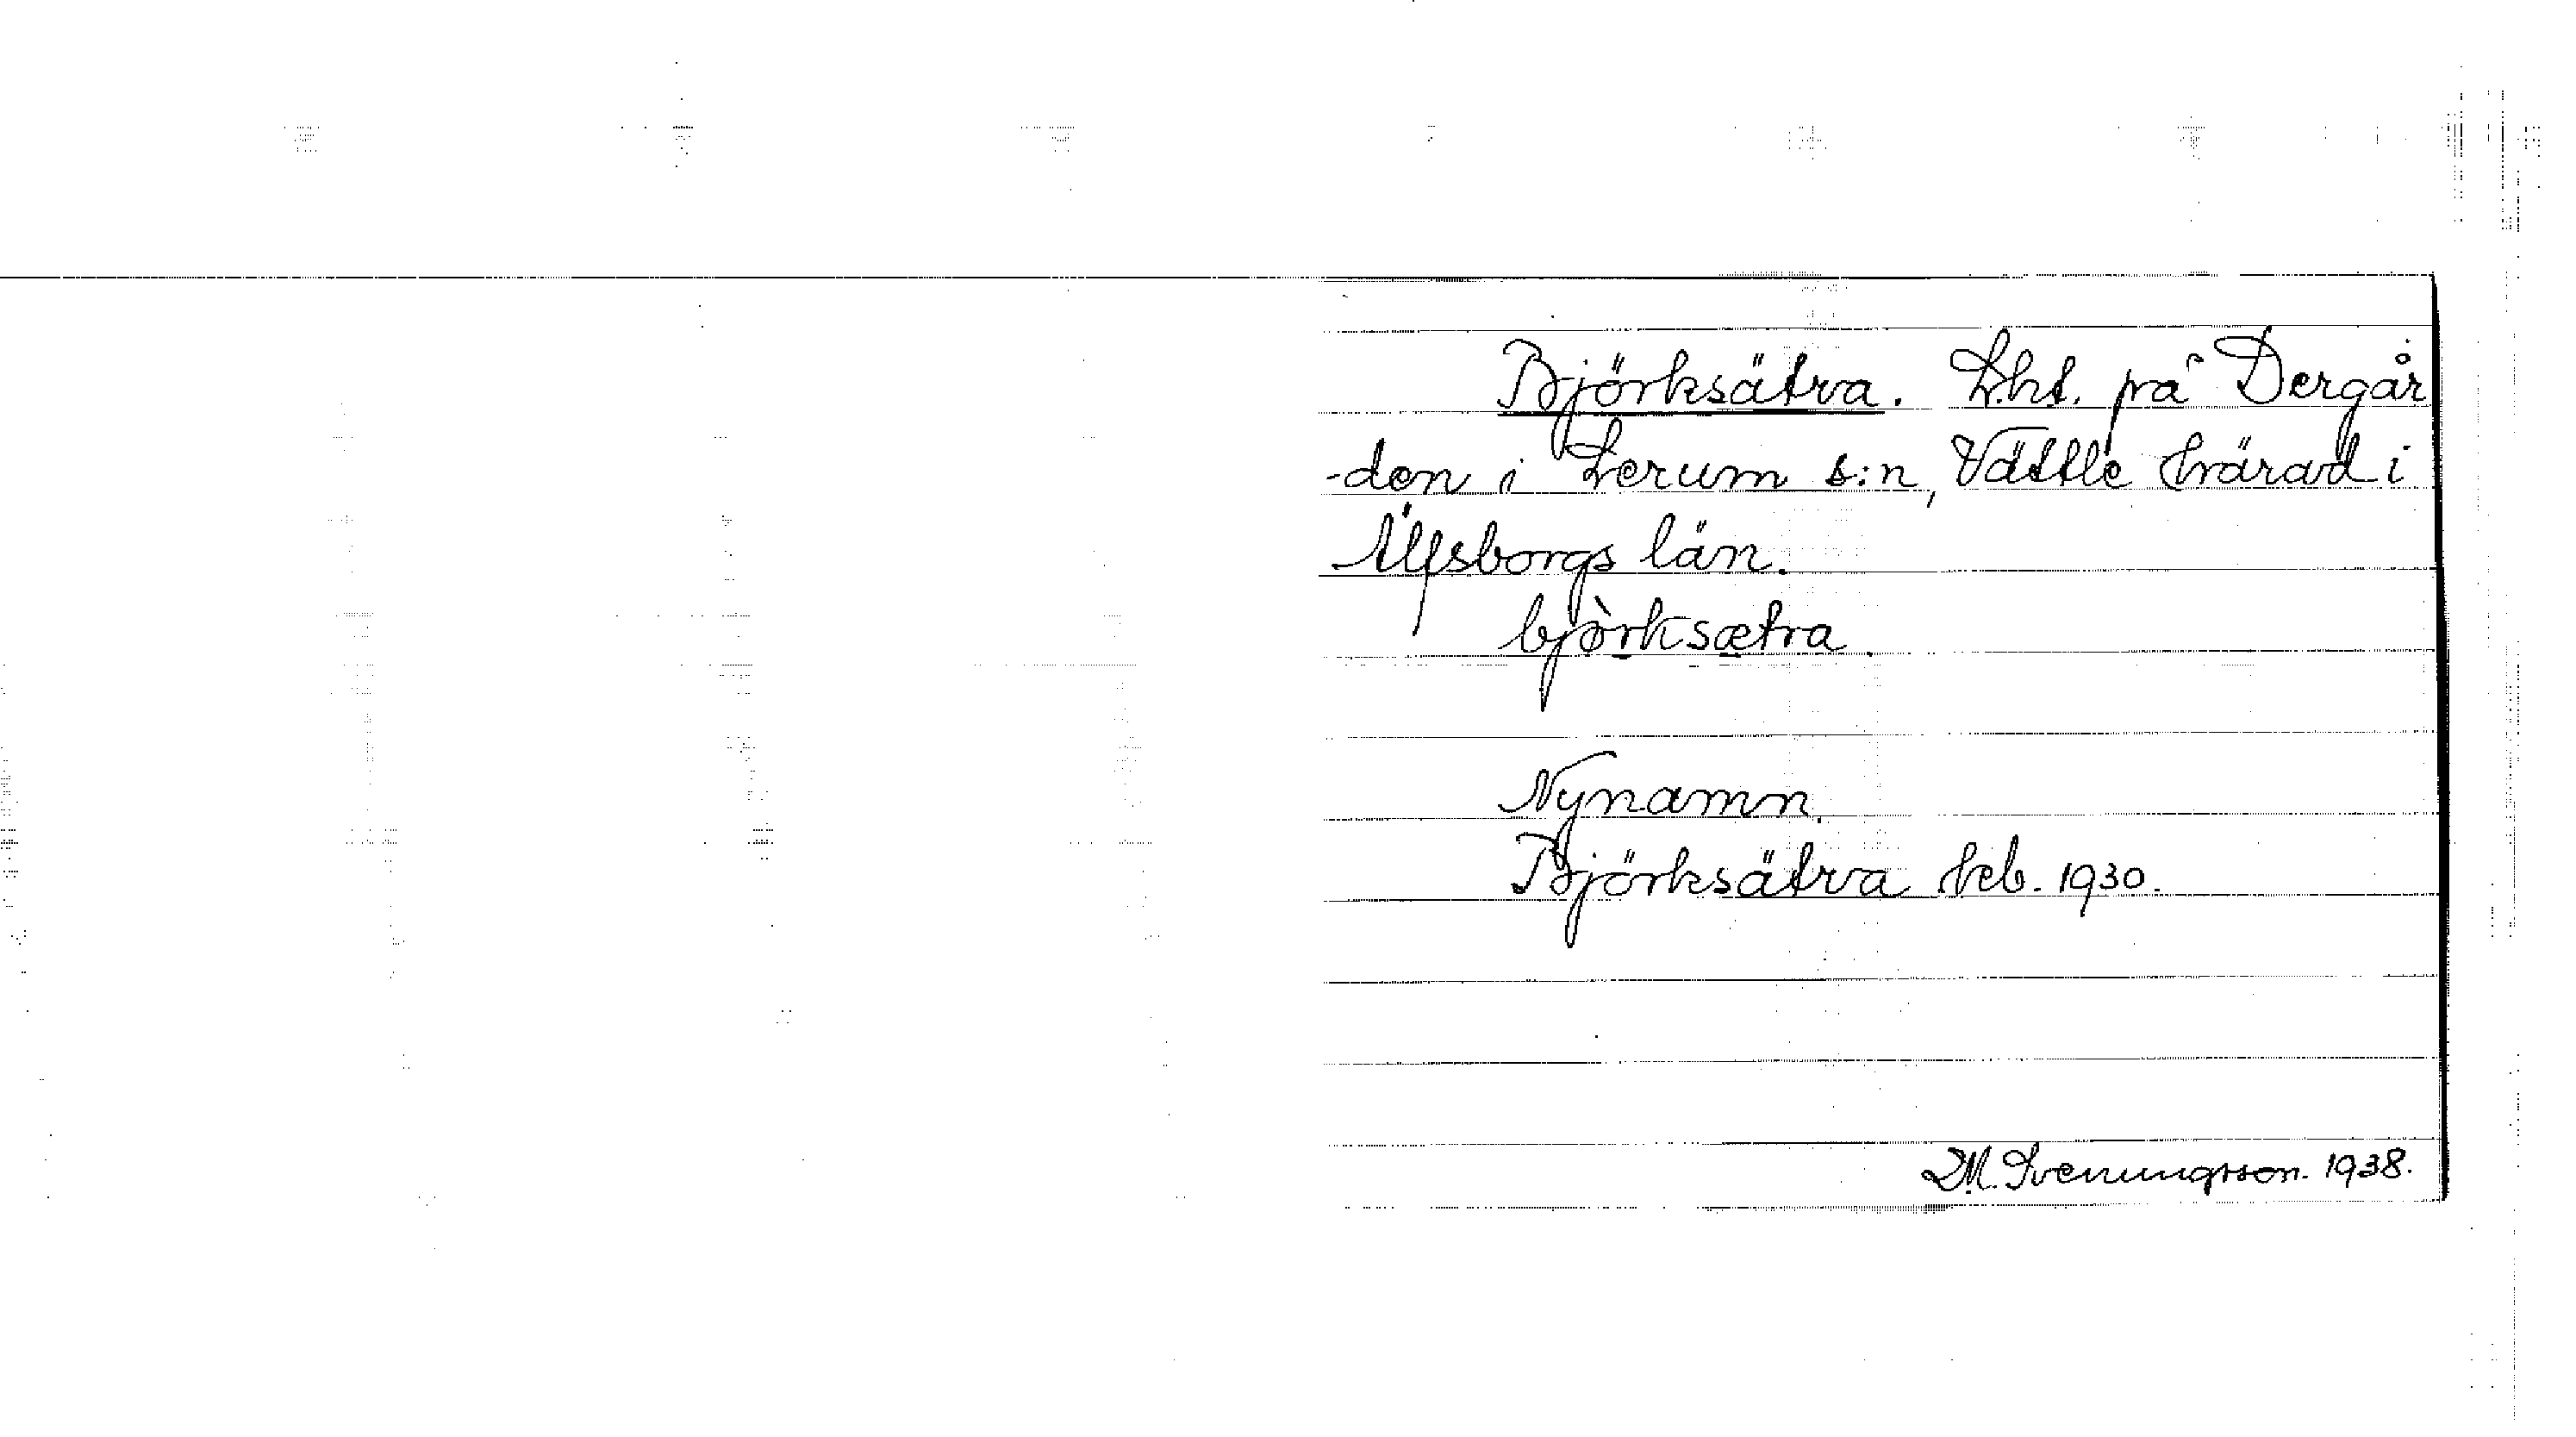 Björksätra. Lht. på Dergår
-den i Lerum s:n, Vättle härad i
Älfsborgs län.
bjòrksætra.
Nynamn.
Björksätra Jeb. 1930.
D.M. Svenungsson. 1938.